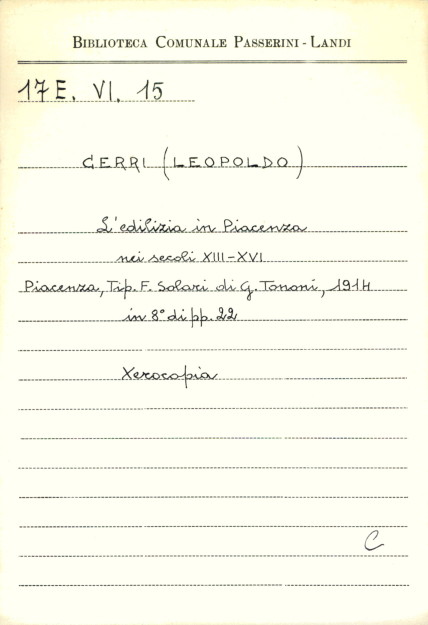 BIBLIOTECA COMUNALE PASSERINI - LANDI
17E. VI. 15
CERRI (LEOPOLDO)
L'edilizia in Piacenza
nei secoli XIII-XVI
Piacenza, Tip. F. Solari di G. Tononi, 1914
in 8° di pp. 22
Xerocopia
C